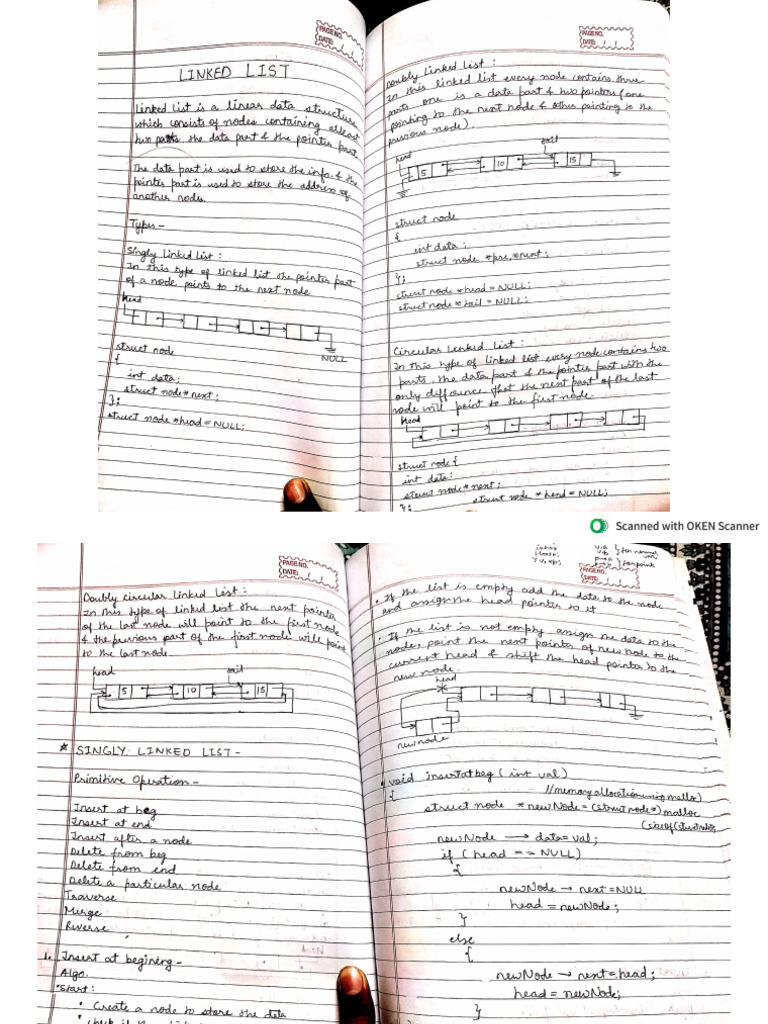 PAGE NO.
DATE: / /
LINKED LIST
Linked List is a linear data structure
which consists of nodes containing atleast
two parts the data part & the pointer part
The data part is used to store the info. & the
pointer part is used to store the address of
another nodes.
Types -
Singly Linked List :
In this type of linked list the pointer part
of a node points to the next node
head
NULL
struct node
{
int data;
struct node * next;
};
struct node *head = NULL;
PAGE NO.
DATE: / /
Doubly Linked List :
In this linked list every node contains three
parts one is a data part & two pointers (one
pointing to the next node & other pointing to the
previous node)
head
tail
5
10
15
struct node
{
int data;
struct node *pre, *next;
};
struct node *head = NULL;
struct node * tail = NULL;
Circular Linked List :
In this type of linked list every node contains two
parts, the data part & the pointer part with the
only difference that the next part of the last
node will point to the first node.
head
struct node {
int data;
struct node * next;
}; struct node * head = NULL;
Scanned with OKEN Scanner
PAGE NO.
DATE: / /
Doubly circular linked list :
In this type of linked list the next pointer
of the last node will point to the first node
& the previous part of the first node will point
to the last node.
head
tail
5
10
15
* SINGLY LINKED LIST -
Primitive Operation -
Insert at beg
Insert at end
Insert after a node
Delete from beg
Delete from end
Delete a particular node
Traverse
Merge
Riverse
1. Insert at begining -
Algo.
*Start :
• Create a node to store the data
PAGE NO.
DATE: / /
• If the list is empty add the data to the node
and assign the head pointer to it
• If the list is not empty assign the data to the
node, point the next pointer of new node to the
current head & shift the head pointer to the
new node.
head
new node
• void insertatbeg ( int val)
{ //memory allocation using malloc)
struct node * newNode = (struct node*) malloc
(size of (struct node));
newNode → data = val;
if ( head == NULL)
{
newNode → next = NULL
head = newNode;
}
else
{
newNode → next = head;
head = newNode;
}